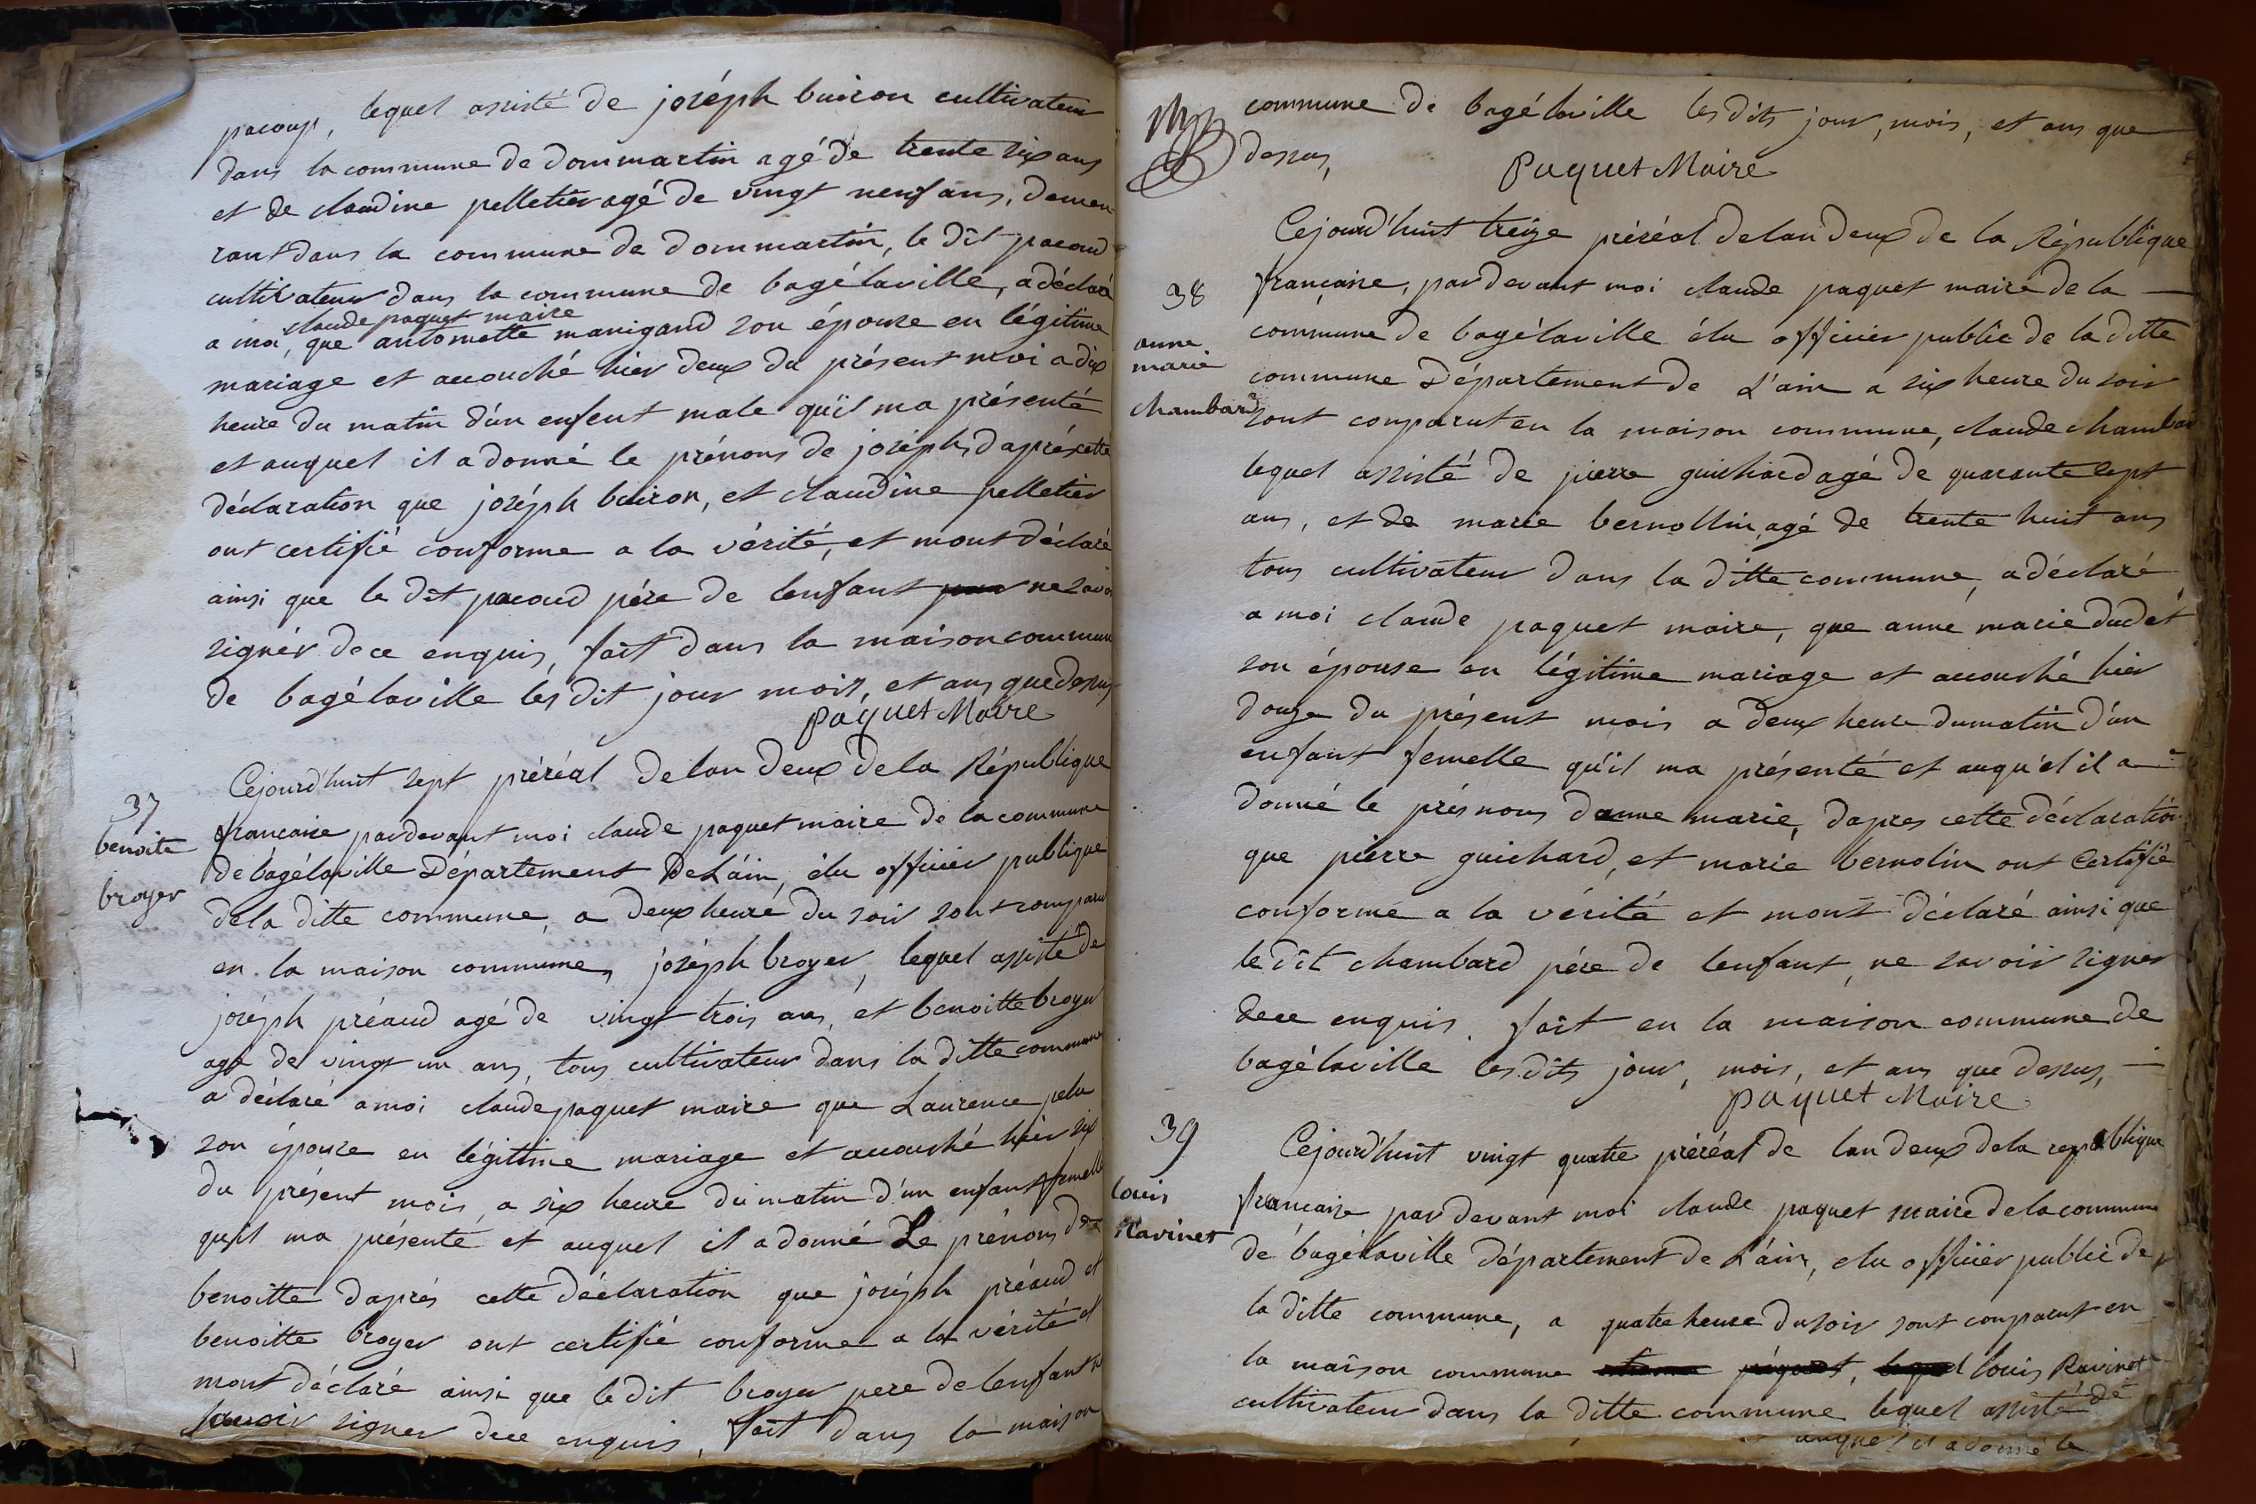 pacoup, lequel assisté de joséph buiron cultivateur
dans la commune de dommartin agé de trente six ans
et de claudine pelletier agé de vingt neuf ans, demeu-
rant dans la commune de dommartin, le dit pacoud
cultivateur dans la commune de bagélaville, a déclaré
claude paquet maire
a moi, que antoinette manigand son épouse en légitime
mariage et accouché hier deux du présent moi a dix
heure du matin d'un enfent male qu'il ma présenté
et auquel il a donné le prénons de joséph, daprés cette
déclaration que joséph buiron, et claudine pelletier
ont certifié conforme a la vérité, et mont déclaré
ainsi que le dit pacoud pére de lenfant ne savoi
signér de ce enquis, fait dans la maison commune
de bagélaville les dit jour mois, et ans que dessus
Paquet Maire
37
benoite
broyer
Cejourd'huit sept préréal de lan deux de la République
francaise pardevant moi claude paquet maire de la commune
de bagélaville Département De L'áin, élu officiér publique
de la ditte commune, a deux heure du soir sont comparu
en la maison commume, joséph broyer, lequel assisté de
joséph préaud agé de vingt trois ans, et benoitte broyer
agé de vingt un ans, tous cultivateur dans la ditte commune
a déclaré a moi claude paquet maire que Laurence pela
son épouse en légitime mariage et accouché hier six
du présent mois, a six heure du matin d'un enfant femelle
qu'il ma présenté et auquel il a donné Le prénons de
benoitte daprés cette déclaration que joséph préaud et
benoitte broyer ont certifié conforme a la vérité et
mont déclaré ainsi que le dit broyer pere de lenfant ne
savoir signer de ce enquis, fait dans la maison
commune de bagélaville les dits jour, mois, et ans que
dessus,
Paquet Maire
38
anne
marie
chambard
Cejourd'huit treize préréal de lan deux de la République
française, pardevant moi claude paquet maire de la
commune de bagélaville élu officier public de la ditte
commune Département de L'ain a six heure du soir
sont comparut en la maison commune, claude chambar
lequel assisté de pierre guichard agé de quarante sept
ans, et de marie bernollin, agé de trente huit ans
tous cultivateur dans la ditte commune, a déclaré
a moi claude paquet maire, que anne marie dudet
son épouse en légitime mariage et accouché hier
douze du présent mois a deux heure du matin d'un
enfant femelle qu'il ma présenté et auqu'el il a
donné le présnons danne marie, dapres cette déclaration
que pierre guichard, et marie bernolin ont certifié
conforme a la vérité et mont déclaré ainsi que
le dit chambard pére de lenfant, ne savoir signer
de ce enquis, fait en la maison commune de
bagélaville les dits jour, mois, et ans que dessus,
Paquet Maire
39
louis
Ravinet
Cejourd'huit vingt quatre préréal de lan deux de la republique
française par devant moi claude paquet maire de la commune
de bagélaville département de L'áin, élu officiér public de
la ditte commune, a quatre heure du soir sont comparut en
la maison commune louis Ravinet
cultivateur dans la ditte commune lequel assisté de
auquel il a donné le